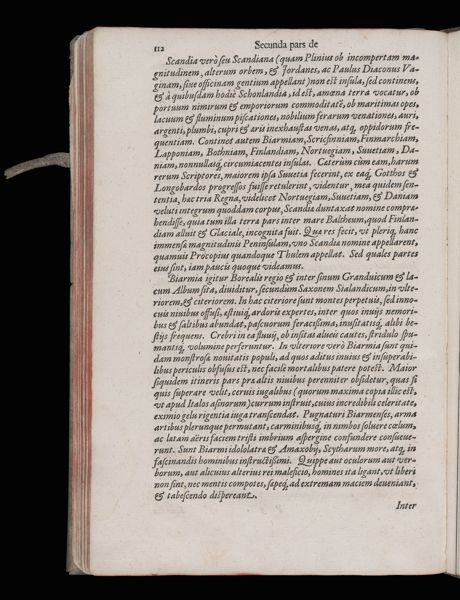 112
Secunda pars de
Scandia verò seu Scandiana (quam Plinius ob incompertam ma-
gnitudinem, alterum orbem, & Jordanes, ac Paulus Diaconus Va-
ginam, siue officinam gentium appellant) non est insula, sed continens,
& à quibusdam hodie Schonlandia, id est, amœna terra vocatur, ob
portuum nimirum & emporiorum commoditatē, ob maritimas opes,
lacuum & fluminum piscationes, nobilium ferarum venationes, auri,
argenti, plumbi, cupri & æris inexhaustas venas, atq, oppidorum fre-
quentiam. Continet autem Biarmiam, Scricfinniam, Finmarchiam,
Lapponiam, Bothniam, Finlandiam, Nortuegiam, Suuetiam, Da-
niam, nonnullasq́, circumiacentes insulas. Cæterùm cùm eam, harum
rerum Scriptores, maiorem ipsa Suuetia fecerint, ex eaq́, Gotthos &
Longobardos progressos fuisse retulerint, videntur, mea quidem sen-
tentia, hæc tria Regna, videlicet Nortuegiam, Suuetiam, & Daniam
veluti integrum quoddam corpus, Scandiæ duntaxat nomine compre-
hendisse, quia tum illa terræ pars inter mare Baltheum, quod Finlan-
diam alluit & Glaciale, incognita fuit. Quæ res fecit, vt pleriq, hanc
immensæ magnitudinis Peninsulam, vno Scandiæ nomine appellarent,
quamuis Procopius quandoque Thulem appellat. Sed quales partes
eius sint, iam paucis quoque videamus.
Biarmia igitur Borealis regio & inter sinum Granduicum & la-
cum Album sita, diuiditur, secundùm Saxonem Sialandicum, in vlte-
riorem, & citeriorem. In hac citeriore sunt montes perpetuis, sed inno-
cuis niuibus offusi, æstiuiq́, ardoris expertes, inter quos inuijs nemori-
bus & saltibus abundāt, pascuorum feracissima, inusitatisq́, alibi be-
stijs frequens. Crebri in ea fluuij, ob insitas alueis cautes, stridulo spu-
mantiq́, volumine perferuntur. In vlteriore verò Biarmia sunt qui-
dam monstrosæ nouitatis populi, ad quos aditus inuius & insuperabi-
libus periculis obsitus est, nec facilè mortalibus patere potest. Maior
siquidem itineris pars præ altis niuibus perenniter obsidetur, quas si
quis superare velit, ceruis iugalibus (quorum maxima copia illic est,
vt apud Italos asinorum) currum instruit, cuius incredibili celeritate,
eximio gelu rigentia iuga transcendat. Pugnaturi Biarmenses, arma
artibus plerunque permutant, carminibusq́, in nimbos soluere cælum,
ac lætam aëris faciem tristi imbrium aspergine confundere consueue-
runt. Sunt Biarmi idololatræ & Amaxoby, Scytharum more, atq, in
fascinandis hominibus instructissimi. Quippe aut oculorum aut ver-
borum, aut alicuius alterius rei maleficio, homines ita ligant, vt liberi
non sint, nec mentis compotes, sæpeq́, ad extremam maciem deueniant,
& tabescendo dispereant.
Inter